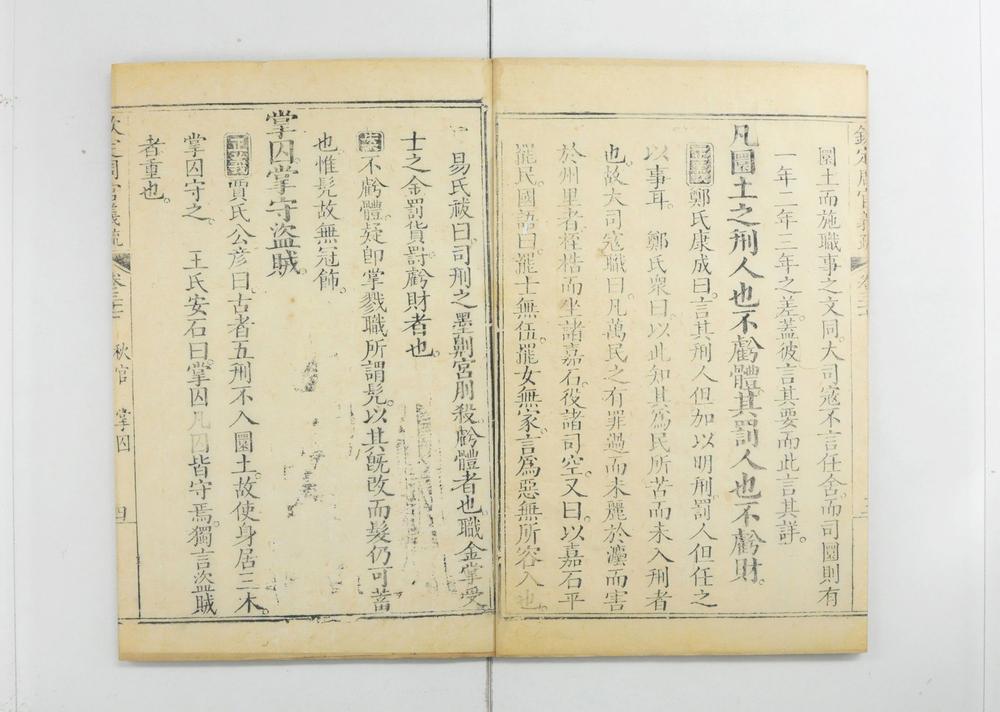 圜土而施職事之文同。大司寇不言任舍。而司圜則有
一年二年三年之差。蓋彼言其要而此言其詳。
凡圜土之刑人也不虧體。其罰人也不虧財。
正義鄭氏康成曰。言其刑人但加以明刑。罰人但任之
以事耳。 鄭氏衆曰。以此知其爲民所苦而未入刑者
也。故大司寇職曰。凡萬民之有罪過而未麗於灋而害
於州里者。桎梏而坐諸嘉石。役諸司空。又曰。以嘉石平
罷民。國語曰。罷士無伍。罷女無家。言爲惡無所容入也。
易氏祓曰。司刑之墨劓宮刖殺。虧體者也。職金掌受
士之金罰貨罰。虧財者也。
不虧體。疑卽掌戮職所謂髡。以其旣改而髮仍可蓄
也。惟髡故無冠飾。
掌囚。掌守盜賊。
正義賈氏公彦曰。古者五刑不入圜土。故使身居三木。
掌囚守之。 王氏安石曰。掌囚凡囚皆守焉。獨言盜賊
者重也。
欽定周官義疏 秋官 掌囚 四